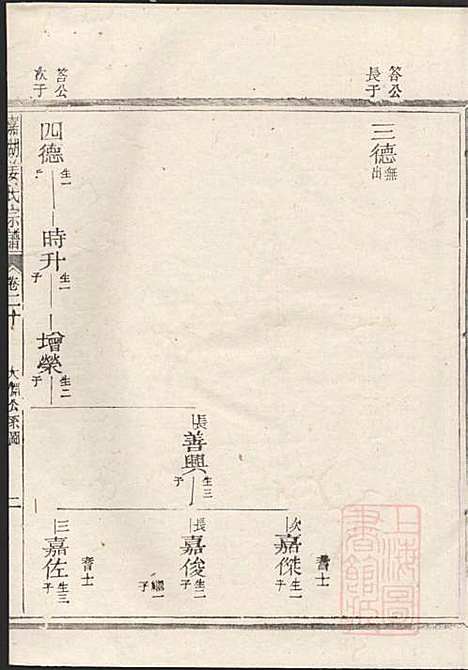 答公長子
三德 無出
答公次子
四德 生一子
時升 生一子
增榮 生二子
長 善興 生三子
次 嘉傑 生一子
書士
長 嘉俊 生二子
繼一子
三 嘉佐 生三子
書士
嘉湖姜氏宗譜
卷二十
大
公系圖
二
上海圖書館藏